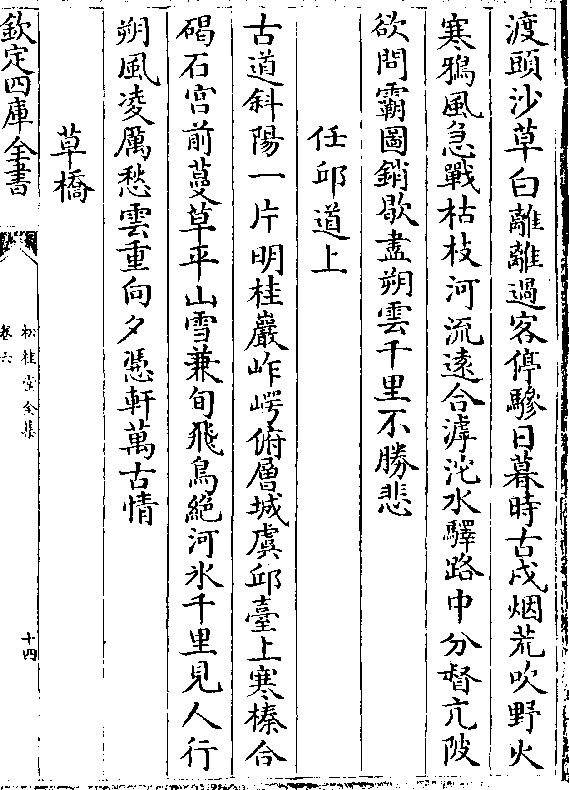 渡頭沙草白離離過客停驂日暮時古戍烟荒吹野火
寒鴉風急戰枯枝河流遠合滹沱水驛路中分督亢陂
欲問霸圖銷歇盡朔雲千里不勝悲
任邱道上
古道斜陽一片明桂巖岞崿俯層城虞邱臺上寒榛合
碣石宫前蔓草平山雪兼旬飛鳥絕河氷千里見人行
朔風凌厲愁雲重向夕憑軒萬古情
草橋
欽定四庫全書
松桂堂全集
卷六
十四